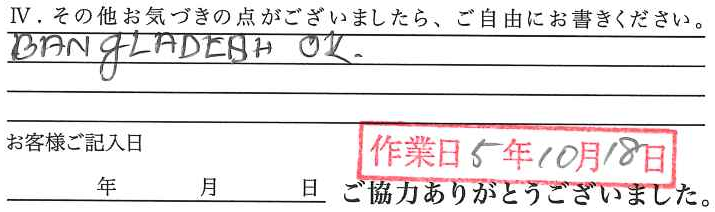 Ⅳ．その他お気づきの点がございましたら、ご自由にお書きください。
BANgLADESH OK.
お客様ご記入日
作業日5年10月18日
年 月 日
ご協力ありがとうございました。